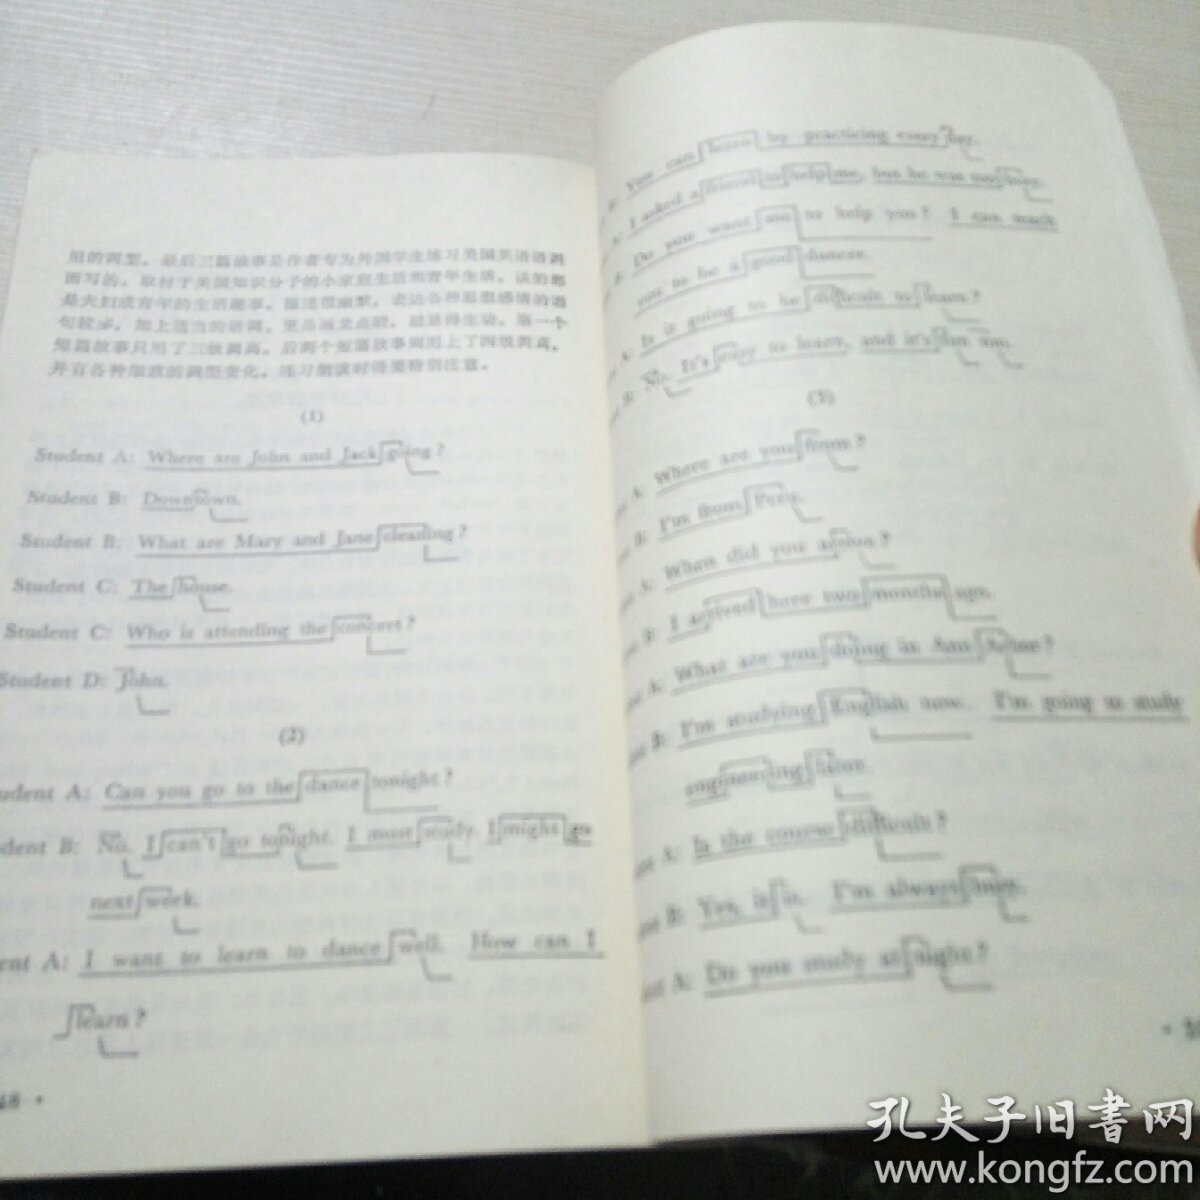 用的调型。最后三篇故事是作者专为外国学生练习美国英语语调
而写的。取材于美国知识分子的小家庭生活和青年生活。谈的都
是夫妇或青年的生活趣事。描述很幽默。表达各种思想感情的语
句较多。加上适当的语调。更是画龙点睛。越显得生动。第一个
短篇故事只用了三级调高。后两个短篇故事则用上了四级调高。
并有各种细致的调型变化。练习朗读时得要特别注意。
(1)
Student A: Where are John and Jack going?
Student B: Downtown.
Student B: What are Mary and Jane cleaning?
Student C: The house.
Student C: Who is attending the concert?
Student D: John.
(2)
udent A: Can you go to the dance tonight?
dent B: No. I can't go tonight. I must study. I might go
next week.
ent A: I want to learn to dance well. How can I
learn?
48 •
B: You can learn by practicing every day.
A: I asked a friend to help me, but he was too busy.
B: Do you want me to help you? I can teach
you to be a good dancer.
A: Is it going to be difficult to learn?
B: No. It's easy to learn, and it's fun too.
(3)
A: Where are you from?
B: I'm from Peru.
A: When did you arrive?
B: I arrived here two months ago.
A: What are you doing in Ann Arbor?
B: I'm studying English now. I'm going to study
engineering later.
A: Is the course difficult?
B: Yes, it is. I'm always busy.
A: Do you study at night?
孔夫子旧书网
www.kongfz.com